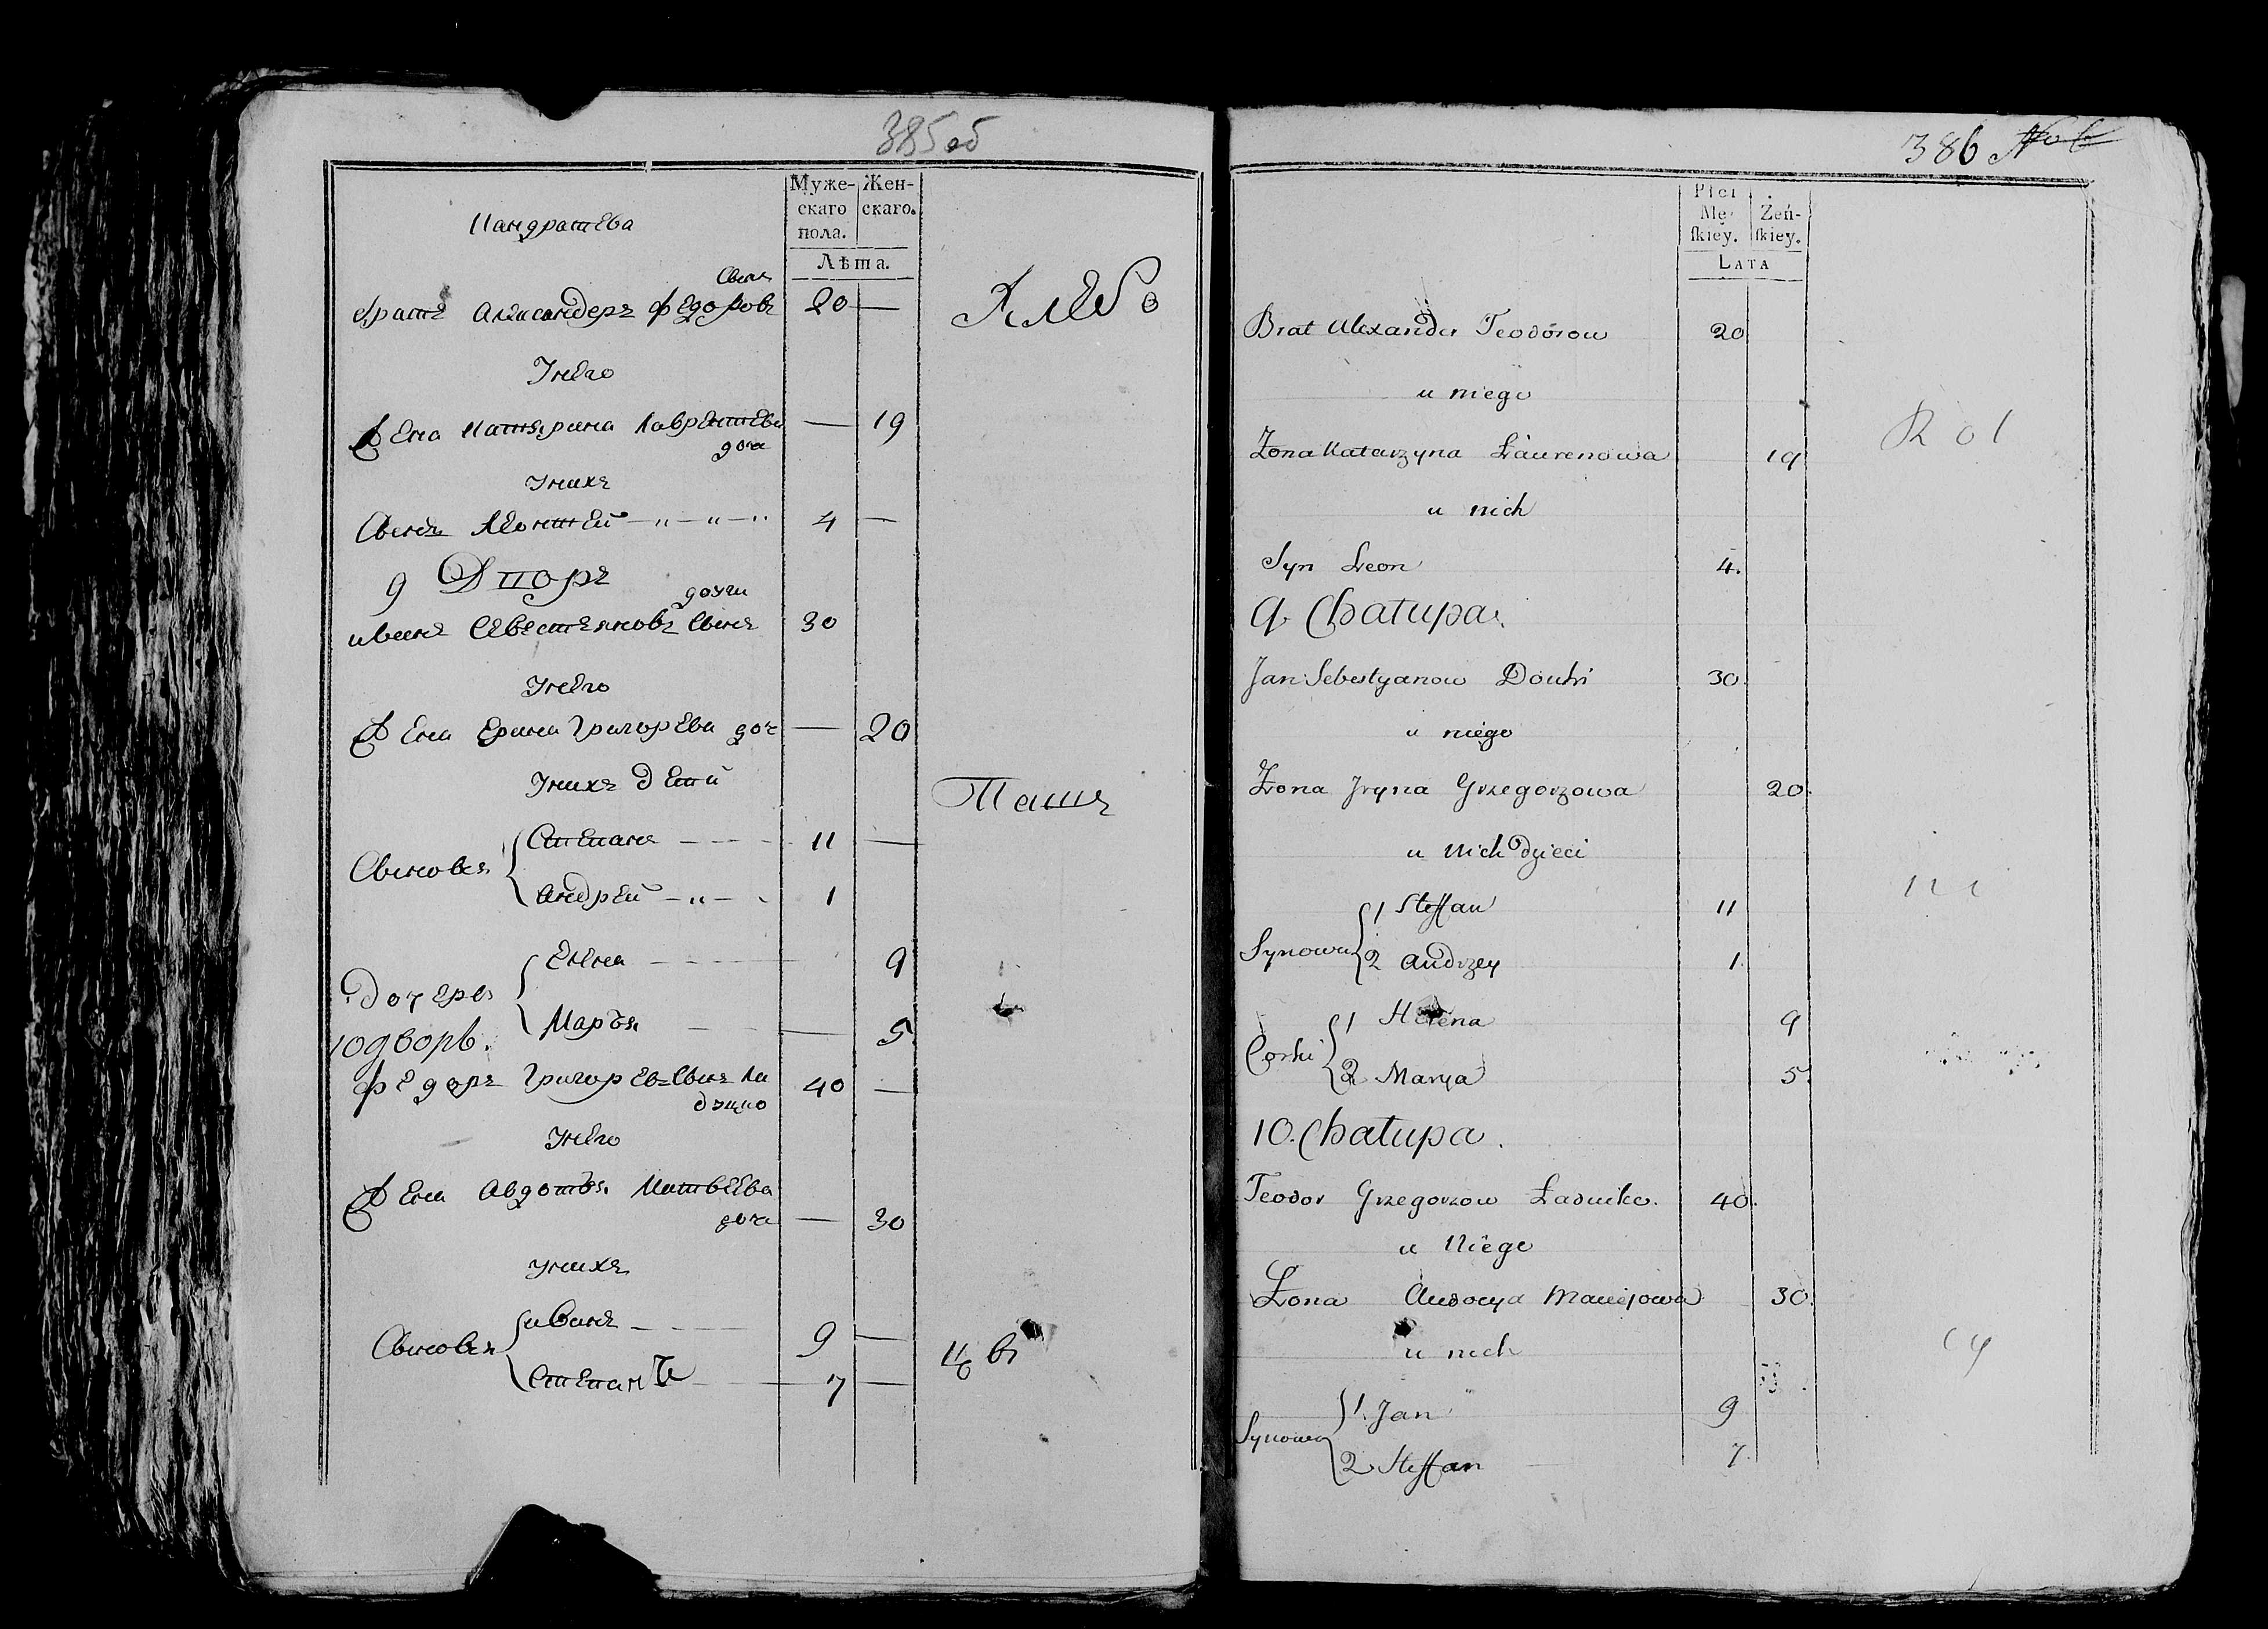 385 об
Муже-
скаго
пола.
Жен-
скаго.
Лѣта.
Кандратева
Сынъ
братъ Александеръ Федоровъ 20 —
Унего
Жена Катярина Лаврентева — 19
доча
Унихъ
Сынъ Леонтей — „ — „ — „ 4 —
9 Дворъ
Иванъ Севестьяновъ Сынъ 30
Унего
Жена Ерина Григорева доч — 20
Унихъ дети
Сыновья { Степанъ — 11 —
Андрей — „ — 1
Дочерь { Елена — 9
Марья — 5
10 дворъ.
Федоръ Григоревъ Сынъ Ла 40 —
Унего
Жена Авдотья Матвеева
доча — 30
Унихъ
Сыновья { Иванъ — 9 —
Степанъ — 7 —
Хлебо
Паши
цы
386 No 6
Płci
Mę-
skiey.
Żeń-
skiey.
LATA
Brat Alexander Teodorow 20
u niego
Żona Katarzyna Ławrenowa 19
u nich
Syn Leon 4.
9. Chałupa.
Jan Sebestyanow 30.
u niego
Żona Jryna Grzegorzowa 20.
u nich dzieci
Synowie { 1 Steffan 11
2 Andrzey 1.
Corki { 1 Helena 9
2 Marya 5.
10. Chałupa.
Teodor Grzegorzow 40.
u Niego
Żona Audocya Maciejowa 30.
u nich
Synowie { 1. Jan 9
2 Steffan 7.
Rol
ni
cy